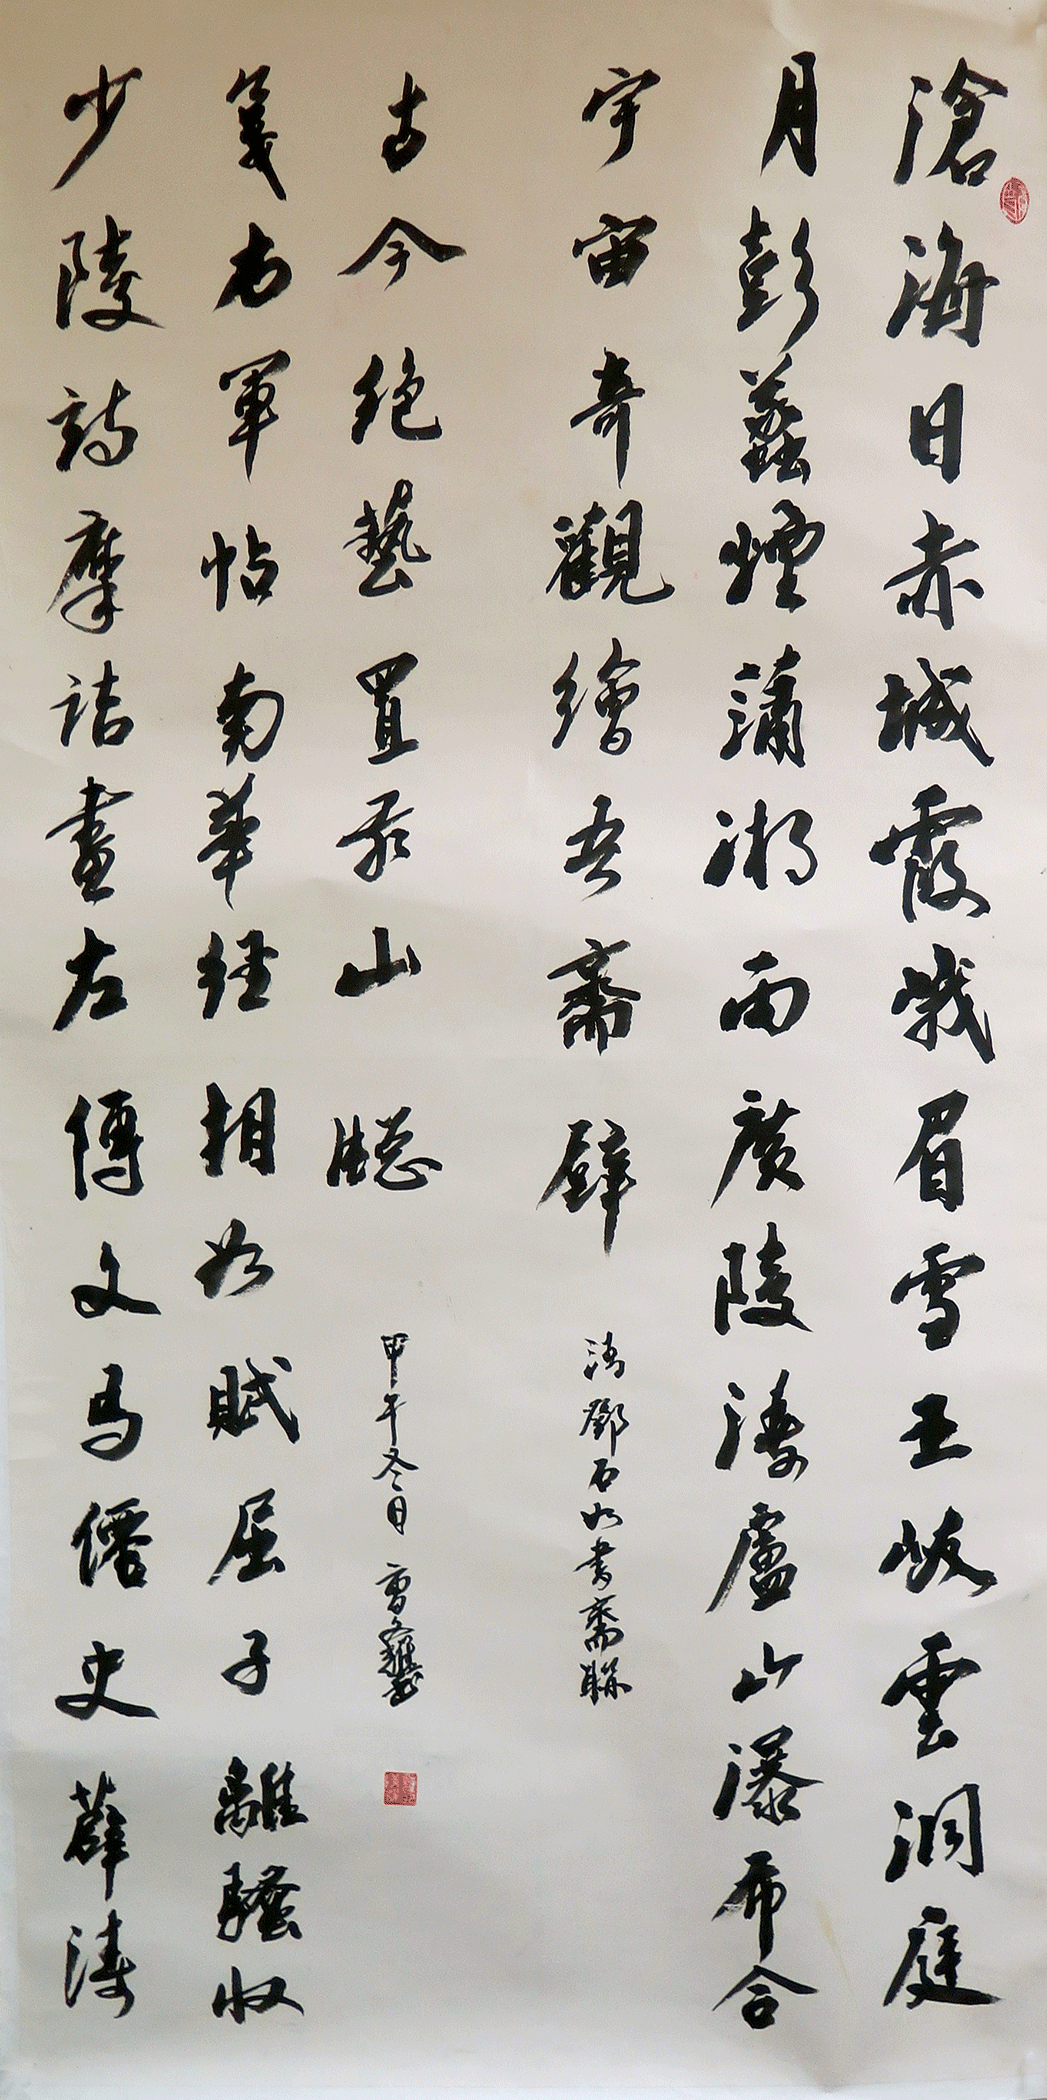 滄海日赤城霞峨眉雪巫峽雲洞庭
月彭蠡煙瀟湘雨廣陵濤廬山瀑布合
宇宙奇觀繪吾齋壁
清鄧石如書齋聯
少陵詩摩詰畫左傳文馬遷史薛濤
箋右軍帖南華經相如賦屈子離騷收
古今絕藝置我山窗
甲午冬日